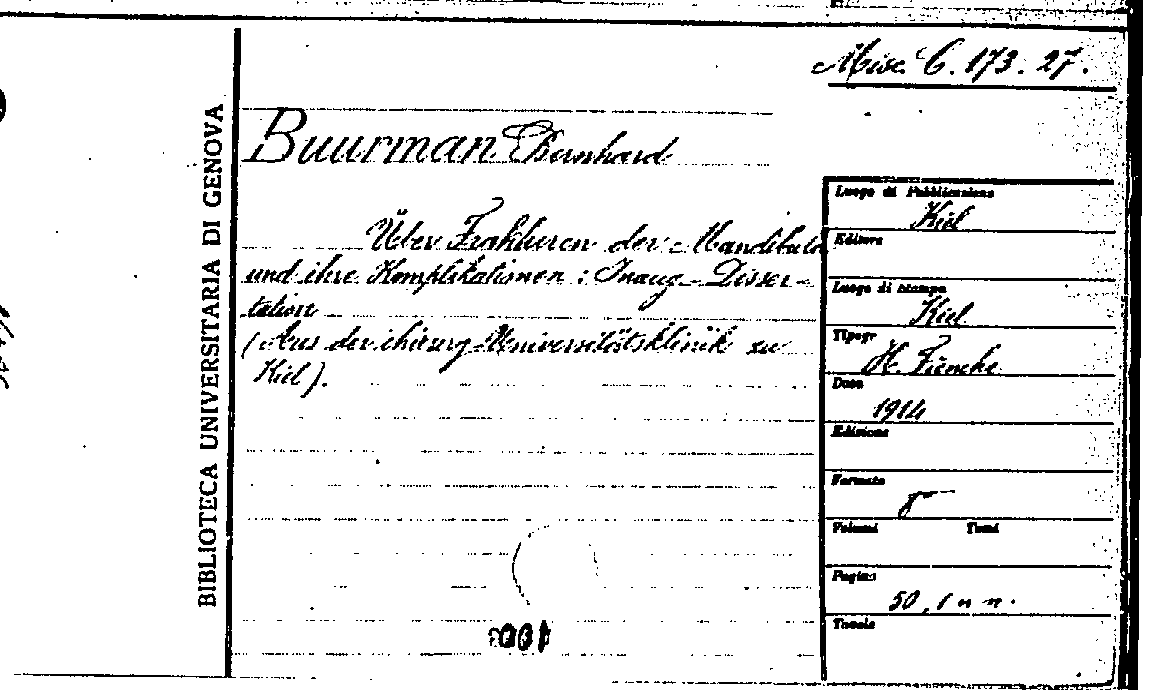 Misc. C. 173. 27.
BIBLIOTECA UNIVERSITARIA DI GENOVA
Buurman Bernhard
Über Frakturen der Mandibula
und ihre Komplikationen : Inaug-Disser-
tation
(Aus der chirurg Universitätsklinik zu
Kiel).
Luogo di Pubblicazione
Kiel
Editore
Luogo di stampa
Kiel
Tipogr
H. Fiencke
Data
1914
Edizione
Formato
8°
Volumi Tomi
Pagine
50, 1 n n.
Tavole